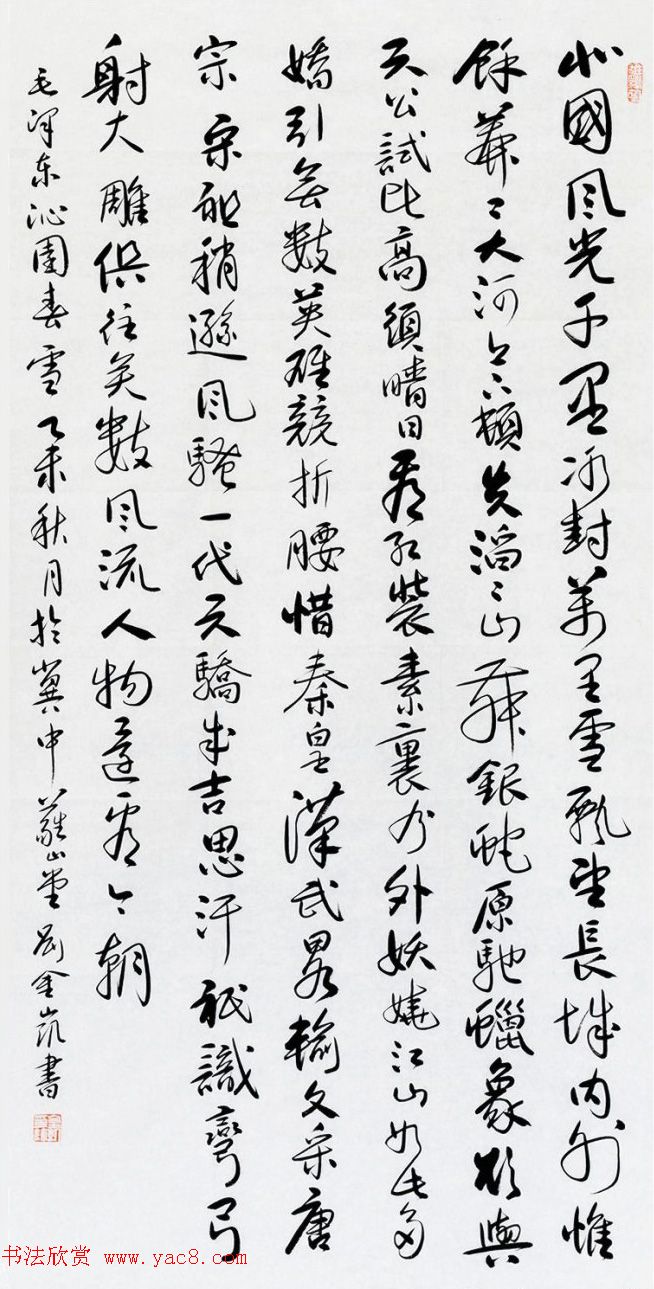 北國風光千里冰封萬里雪飄望長城内外惟
餘莽〻大河上下頓失滔〻山舞銀蛇原馳蠟象欲與
天公試比高須晴日看紅裝素裹分外妖嬈江山如此多
嬌引無數英雄競折腰惜秦皇漢武略輸文采唐
宗宋祖稍遜風騷一代天驕成吉思汗祗識彎弓
射大雕俱往矣數風流人物還看今朝
毛泽东沁園春雪乙未秋月於冀中山堂劉金凱書
书法欣赏 www.yac8.com